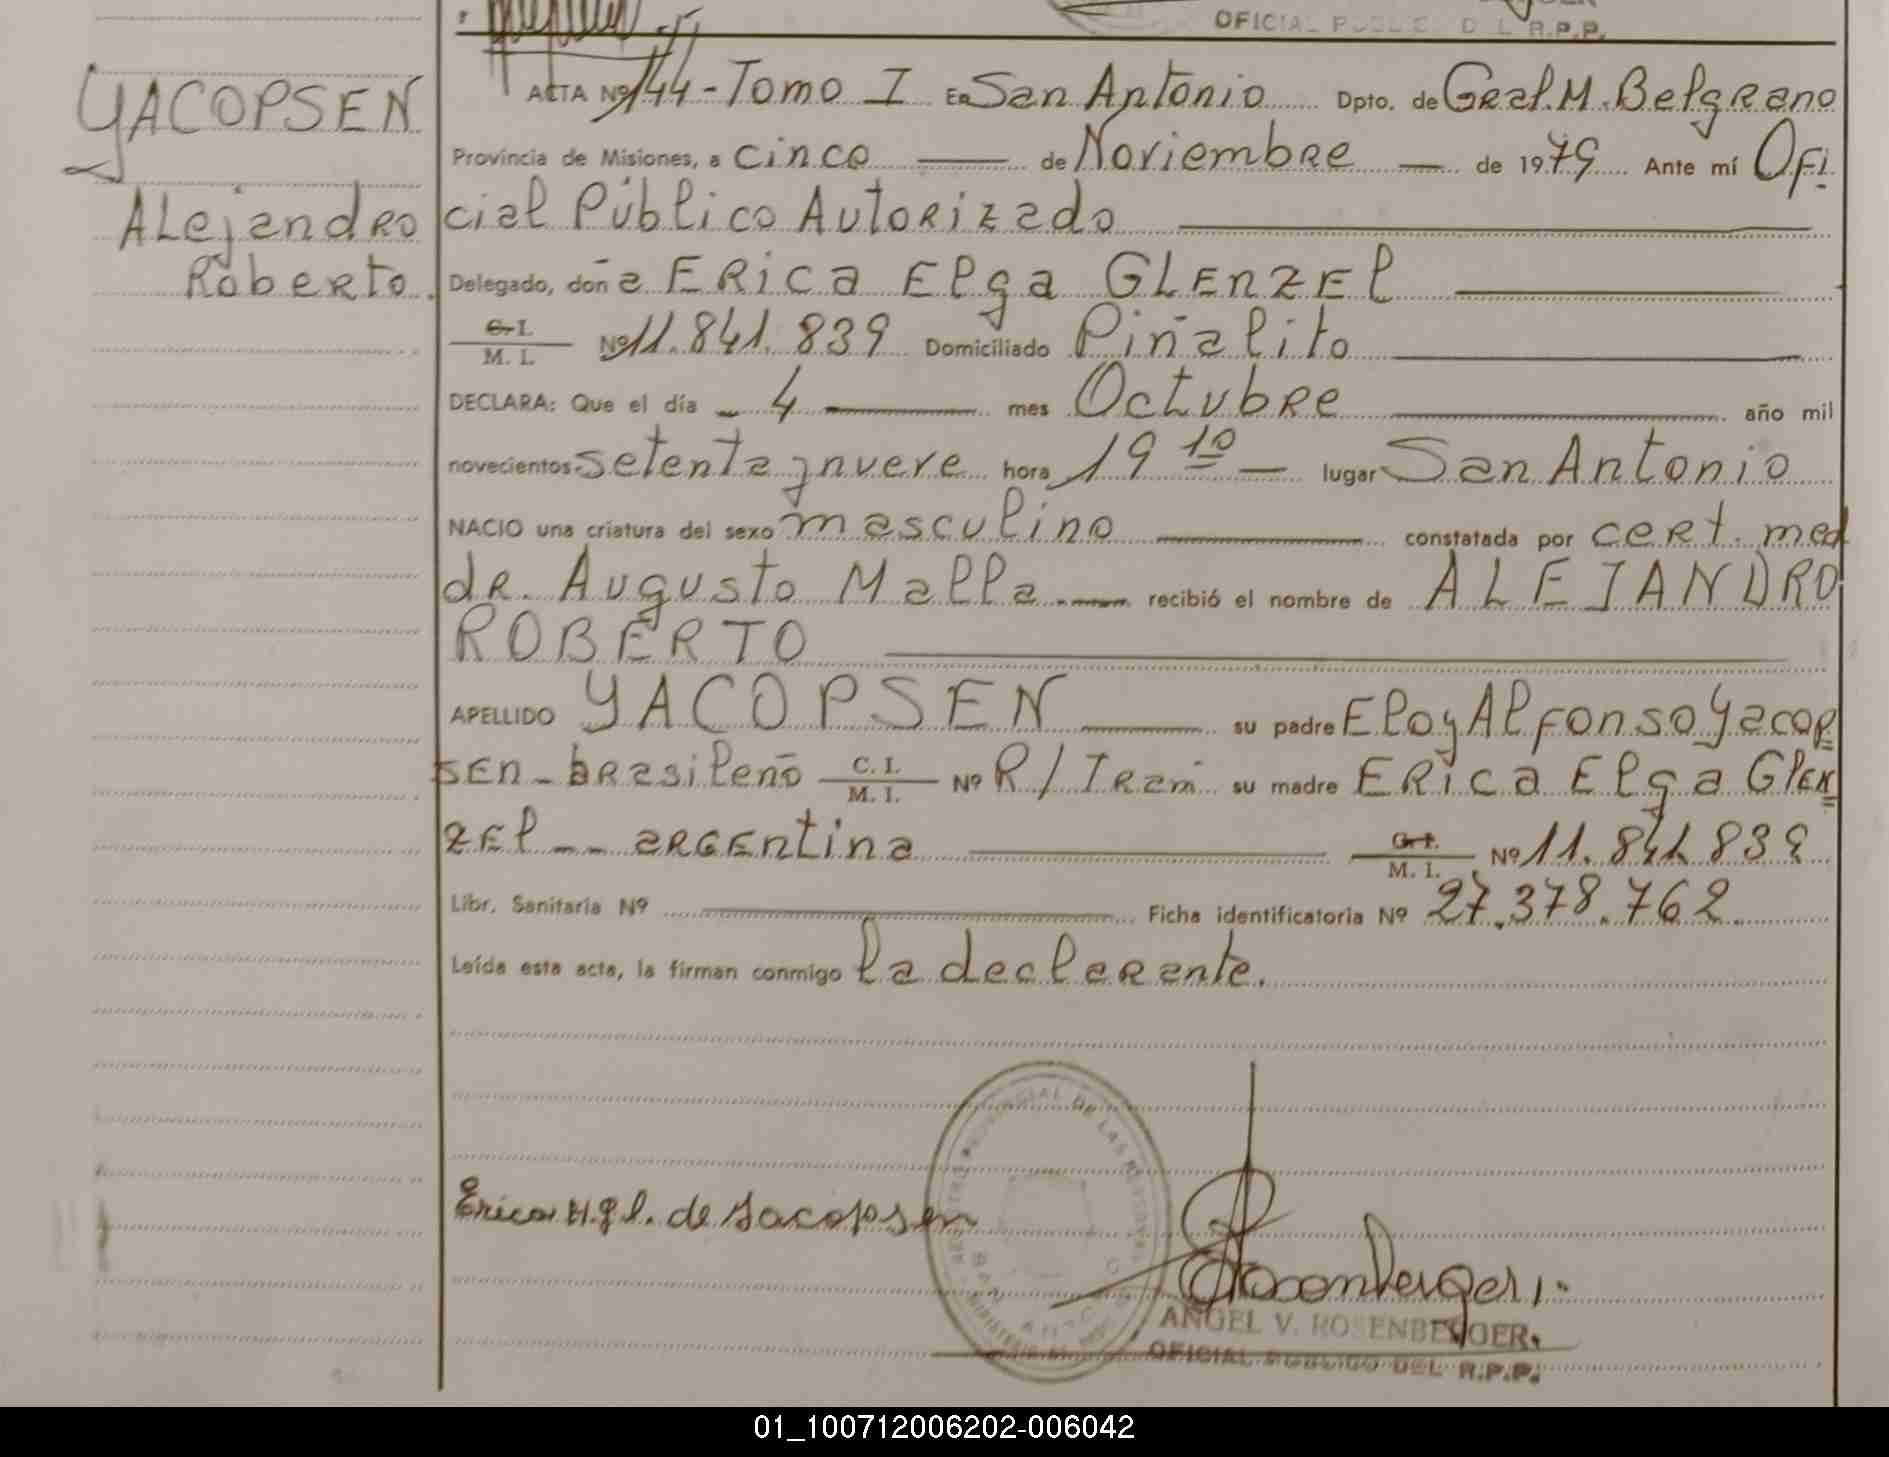 OFICIAL PUBLIC DEL R.P.P.
YACOPSEN
Alejandro
Roberto.
ACTA Nº 144 - Tomo I En San Antonio Dpto. de Gral. M. Belgrano
Provincia de Misiones, a cinco de Noviembre de 1979 Ante mí Ofi
cial Público Autorizado
Delegado, doña ERica Elga GLENZEl
C. I. / M. I. Nº 11.841.839 Domiciliado Piñalito
DECLARA: Que el día 4 mes Octubre año mil
novecientos setenta y nueve hora 19 10 lugar San Antonio
NACIO una criatura del sexo masculino constatada por cert. med
dr. Augusto Malla recibió el nombre de ALEJANDRO
ROBERTO
APELLIDO YACOPSEN su padre Eloy Alfonso Yacop
sen - brasileño C. I. / M. I. Nº R/Tram su madre ERica Elga Glen
zel -- argentina C. I. / M. I. Nº 11.841.839
Libr. Sanitaria Nº Ficha identificatoria Nº 27.378.762
Leída esta acta, la firman conmigo la declarante.
Erica H. gl. de Jacopsen
Rosenberger
ANGEL V. ROSENBERGER
OFICIAL PUBLICO DEL R.P.P.
01_100712006202-006042